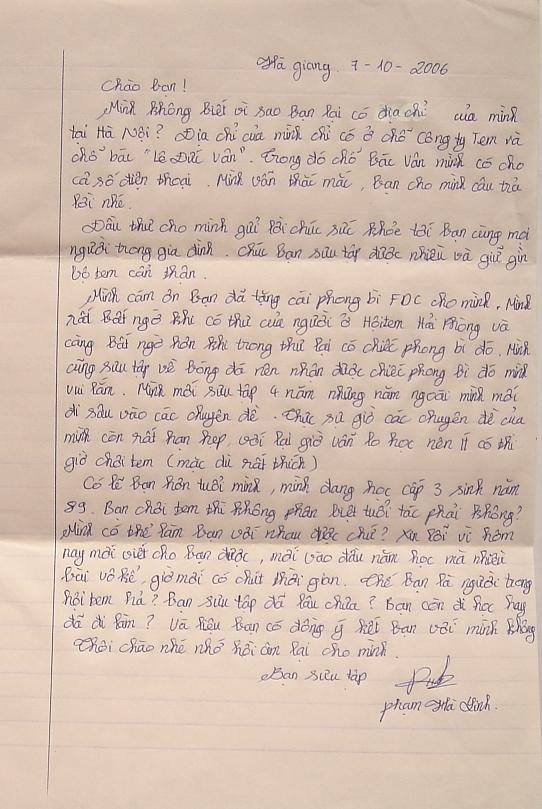 Hà giang. 7 - 10 - 2006
Chào bạn!
Mình không biết vì sao bạn lại có địa chỉ của mình
tại Hà Nội? Địa chỉ của mình chỉ có ở chỗ công ty Tem và
chỗ bác "Lê Đức Vân". Trong đó chỗ Bác Vân mình có cho
cả số điện thoại. Mình vẫn thắc mắc, Bạn cho mình câu trả
lời nhé.
Đầu thư cho mình gửi lời chúc sức khỏe tới Bạn cùng mọi
người trong gia đình. Chúc Bạn sưu tập được nhiều và giữ gìn
bộ tem cẩn thận.
Mình cám ơn Bạn đã tặng cái phong bì FDC cho mình. Mình
rất Bất ngờ khi có thư của người ở Hội tem Hải Phòng và
càng Bất ngờ hơn khi trong thư lại có chiếc phong bì đó. Mình
cũng sưu tập về bóng đá nên nhận được chiếc phong bì đó mình
vui lắm. Mình mới sưu tập 4 năm những năm ngoái mình mới
đi sâu vào các chuyên đề. Thực sự giờ các chuyên đề của
mình còn rất hạn hẹp, với lại giờ vẫn lo học nên ít có thì
giờ chơi tem (mặc dù rất thích)
Có lẽ Bạn hơn tuổi mình, mình đang học cấp 3 sinh năm
89. Bạn chơi tem thì không phân biệt tuổi tác phải không?
Mình có thể làm Bạn với nhau được chứ? Xin lỗi vì hôm
nay mới viết cho Bạn được, mới vào đầu năm học mà nhiều
bài vô kể, giờ mới có chút thời gian. Thế Bạn là người trong
hội tem hả? Bạn sưu tập đã lâu chưa? Bạn còn đi học hay
đã đi làm? Và liệu Bạn có đồng ý kết Bạn với mình không
Thôi chào nhé nhớ hồi âm lại cho mình.
Bạn sưu tập
phạm Hà Ninh.